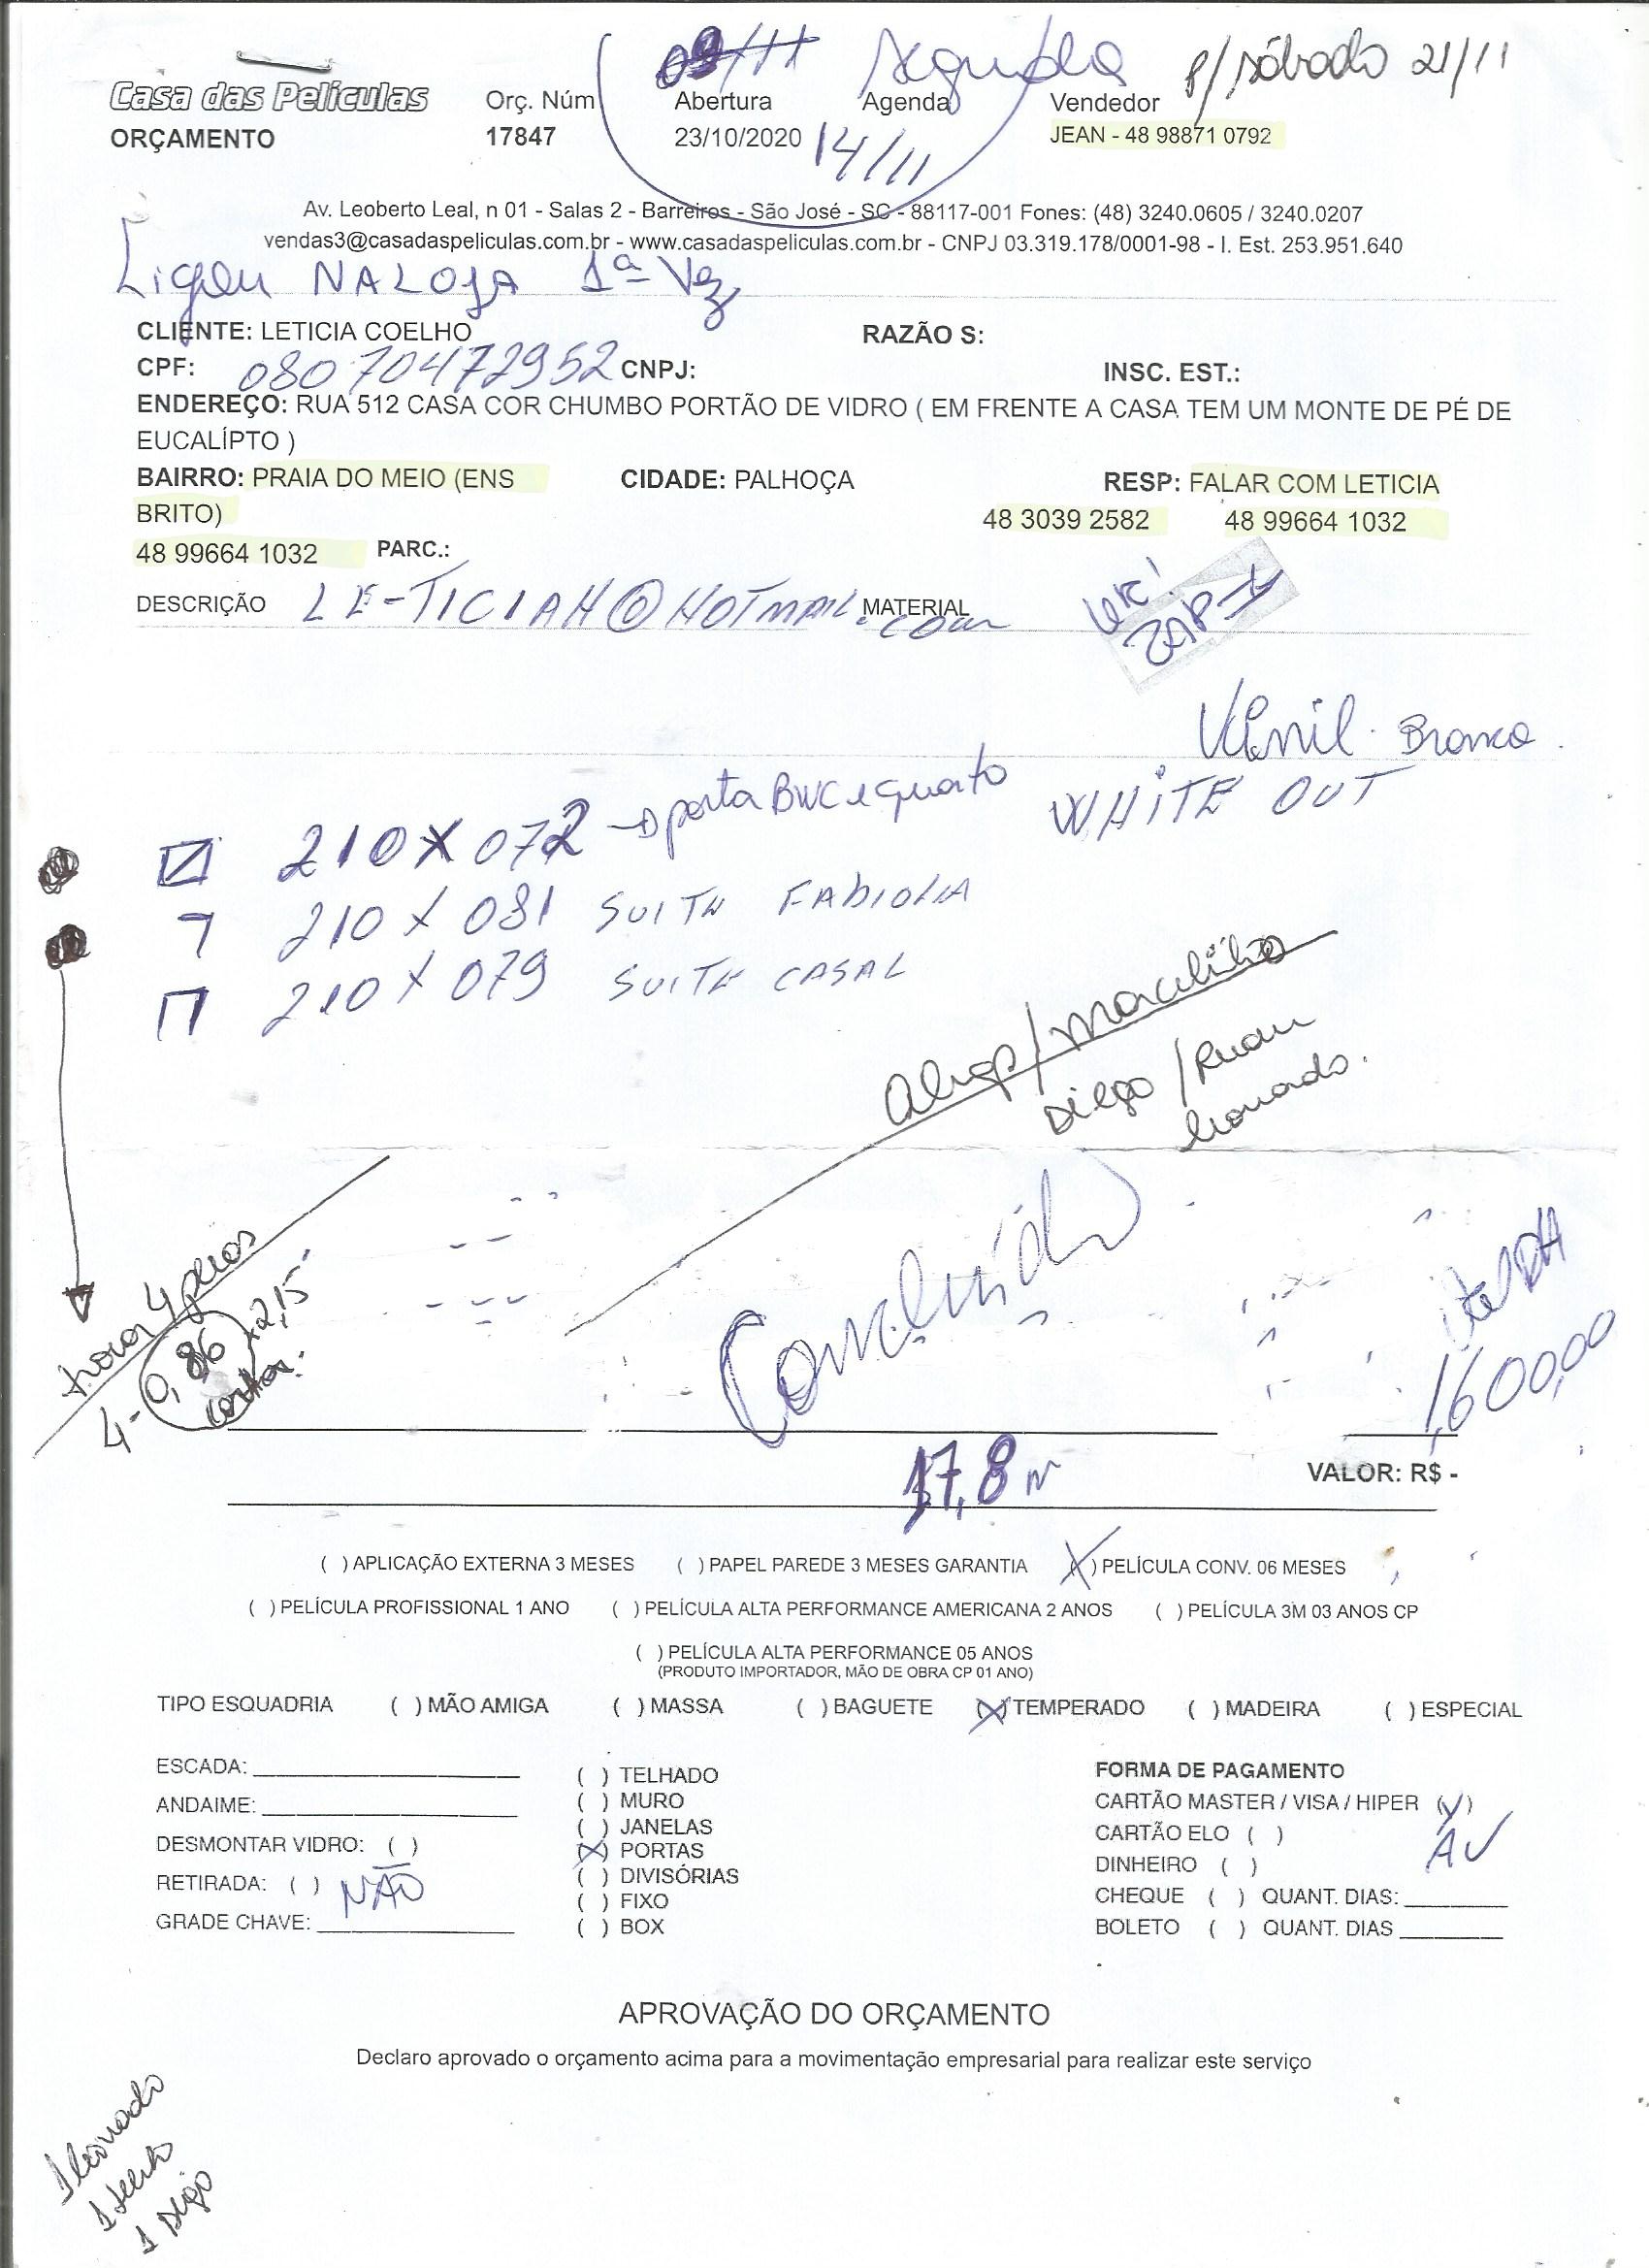 09/11 Segunda P/ Sábado 21/11
Casa das Películas Orç. Núm Abertura Agenda Vendedor
ORÇAMENTO 17847 23/10/2020 14/11 JEAN - 48 98871 0792
Av. Leoberto Leal, n 01 - Salas 2 - Barreiros - São José - SC - 88117-001 Fones: (48) 3240.0605 / 3240.0207
vendas3@casadaspeliculas.com.br - www.casadaspeliculas.com.br - CNPJ 03.319.178/0001-98 - I. Est. 253.951.640
Ligou NA LOJA 1ª Vez
CLIENTE: LETICIA COELHO RAZÃO S:
CPF: 08070472952 CNPJ: INSC. EST.:
ENDEREÇO: RUA 512 CASA COR CHUMBO PORTÃO DE VIDRO ( EM FRENTE A CASA TEM UM MONTE DE PÉ DE
EUCALÍPTO )
BAIRRO: PRAIA DO MEIO (ENS CIDADE: PALHOÇA RESP: FALAR COM LETICIA
BRITO) 48 3039 2582 48 99664 1032
48 99664 1032 PARC.:
DESCRIÇÃO LE-TICIAH@HOTMAIL.com MATERIAL
Vinil Branco
210 X 072 → porta BWC e quarto WHITE OUT
210 X 081 SUITE FABIOLA
210 X 079 SUITE CASAL
Diego / Ruan
Leonardo.
4 - 0,86 x 2,15
cortar.
Concluído
1.600,00
17,8 m
VALOR: R$ -
( ) APLICAÇÃO EXTERNA 3 MESES ( ) PAPEL PAREDE 3 MESES GARANTIA (X) PELÍCULA CONV. 06 MESES
( ) PELÍCULA PROFISSIONAL 1 ANO ( ) PELÍCULA ALTA PERFORMANCE AMERICANA 2 ANOS ( ) PELÍCULA 3M 03 ANOS CP
( ) PELÍCULA ALTA PERFORMANCE 05 ANOS
(PRODUTO IMPORTADOR, MÃO DE OBRA CP 01 ANO)
TIPO ESQUADRIA ( ) MÃO AMIGA ( ) MASSA ( ) BAGUETE (X) TEMPERADO ( ) MADEIRA ( ) ESPECIAL
ESCADA:
ANDAIME:
DESMONTAR VIDRO: ( )
RETIRADA: ( ) NÃO
GRADE CHAVE:
( ) TELHADO
( ) MURO
( ) JANELAS
(X) PORTAS
( ) DIVISÓRIAS
( ) FIXO
( ) BOX
FORMA DE PAGAMENTO
CARTÃO MASTER / VISA / HIPER (V)
CARTÃO ELO ( ) AV
DINHEIRO ( )
CHEQUE ( ) QUANT. DIAS:
BOLETO ( ) QUANT. DIAS
APROVAÇÃO DO ORÇAMENTO
Declaro aprovado o orçamento acima para a movimentação empresarial para realizar este serviço
1 Leonardo
1 Diego